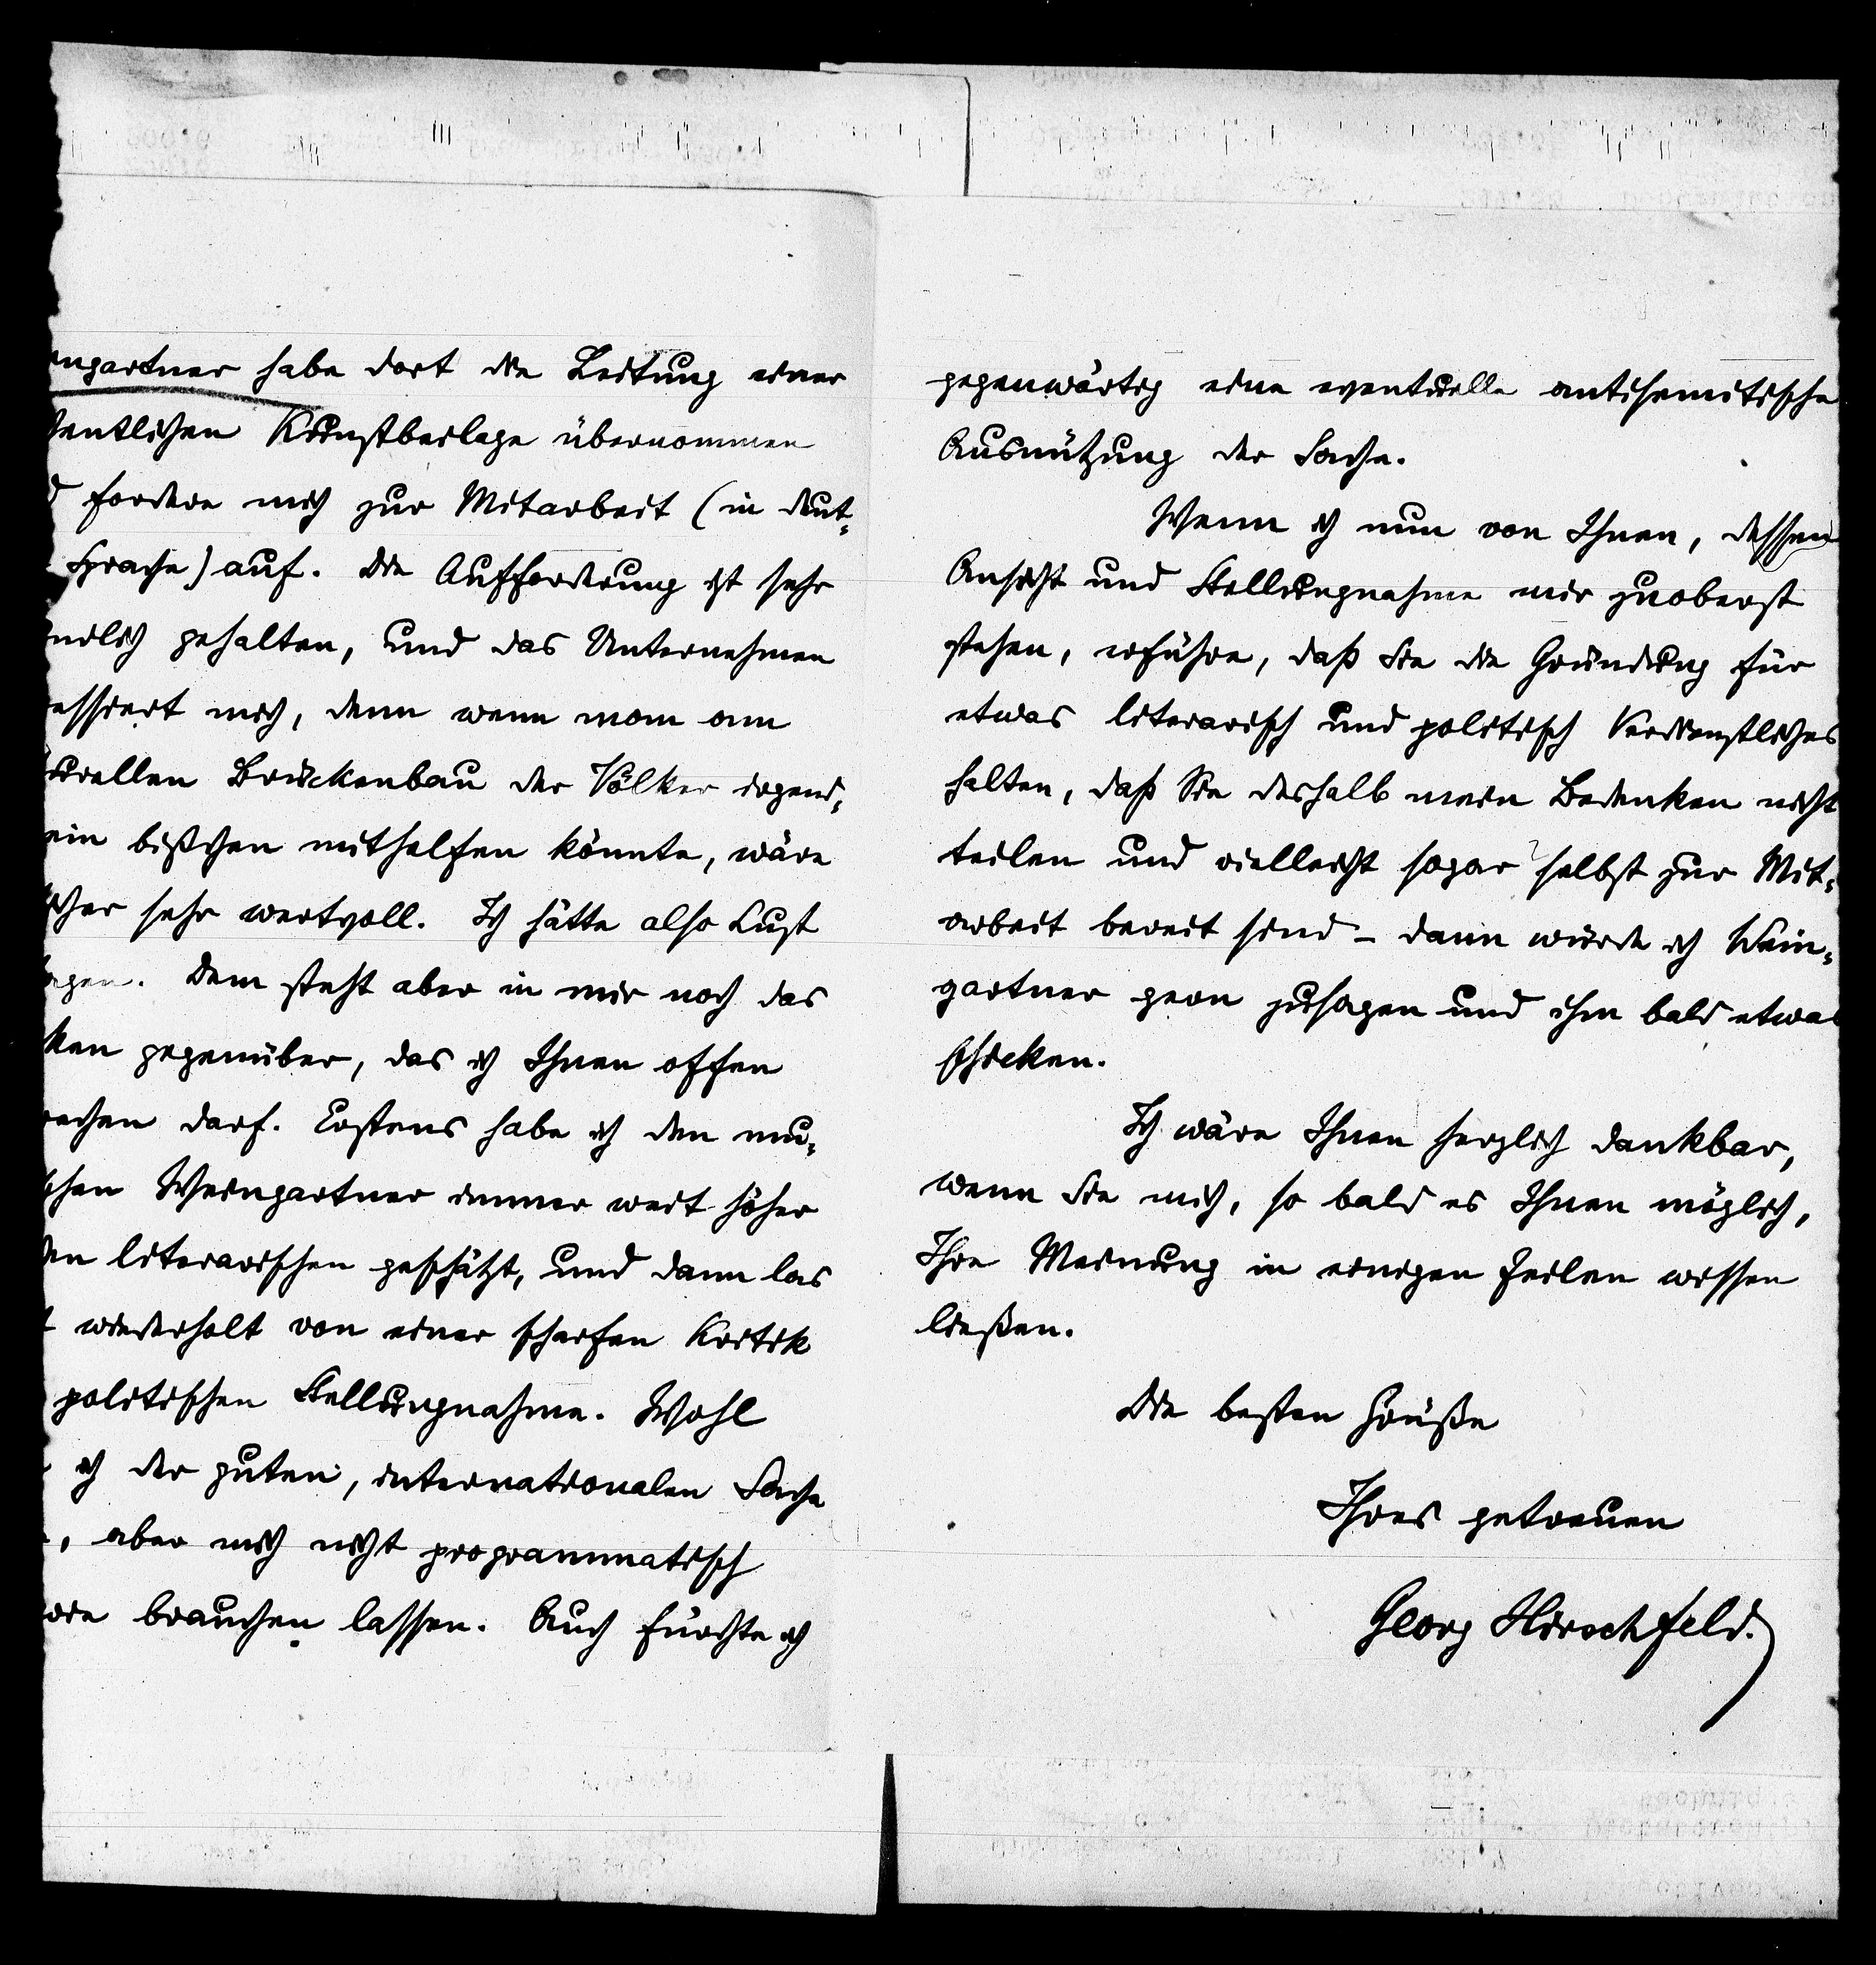 ngartner habe dort die Leitung einer
entlichen Kunstbeilage übernommen
d fordere mich zur Mitarbeit (in deut-
Sprache) auf. Die Aufforderung ist sehr
ndlich gehalten, und das Unternehmen
essiert mich, denn wenn man am
urellen Brückenbau der Völker irgend-
ein bißchen mithelfen könnte, wäre
icher sehr wertvoll. Ich hätte also Lust
agen. Dem steht aber in mir noch das
ken gegenüber, das ich Ihnen offen
rechen darf. Erstens habe ich den mu-
schen Weingartner immer weit höher
den literarischen geschätzt, und dann las
t wiederholt von einer scharfen Kritik
politischen Stellungnahme. Wohl
ich der guten, internationalen Sache
, aber mich nicht programmatisch
brauchen lassen. Auch fürchte ich
gegenwärtig eine eventuelle antisemitische
Ausnützung der Sache.
Wenn ich nun von Ihnen, dessen
Ansicht und Stellungnahme mir zuoberst
stehen, erführe, daß Sie die Gründung für
etwas literarisch und politisch Verdienstliches
halten, daß Sie deshalb mein Bedenken nicht
teilen und vielleicht sogar selbst zur Mit-
arbeit bereit sind – dann würde ich Wein-
gartner gern zusagen und ihm bald etwas
schicken.
Ich wäre Ihnen herzlich dankbar,
wenn Sie mich, so bald es Ihnen möglich,
Ihre Meinung in einigen Zeilen wissen
ließen.
Die besten Grüße
Ihres getreuen
Georg Hirschfeld.